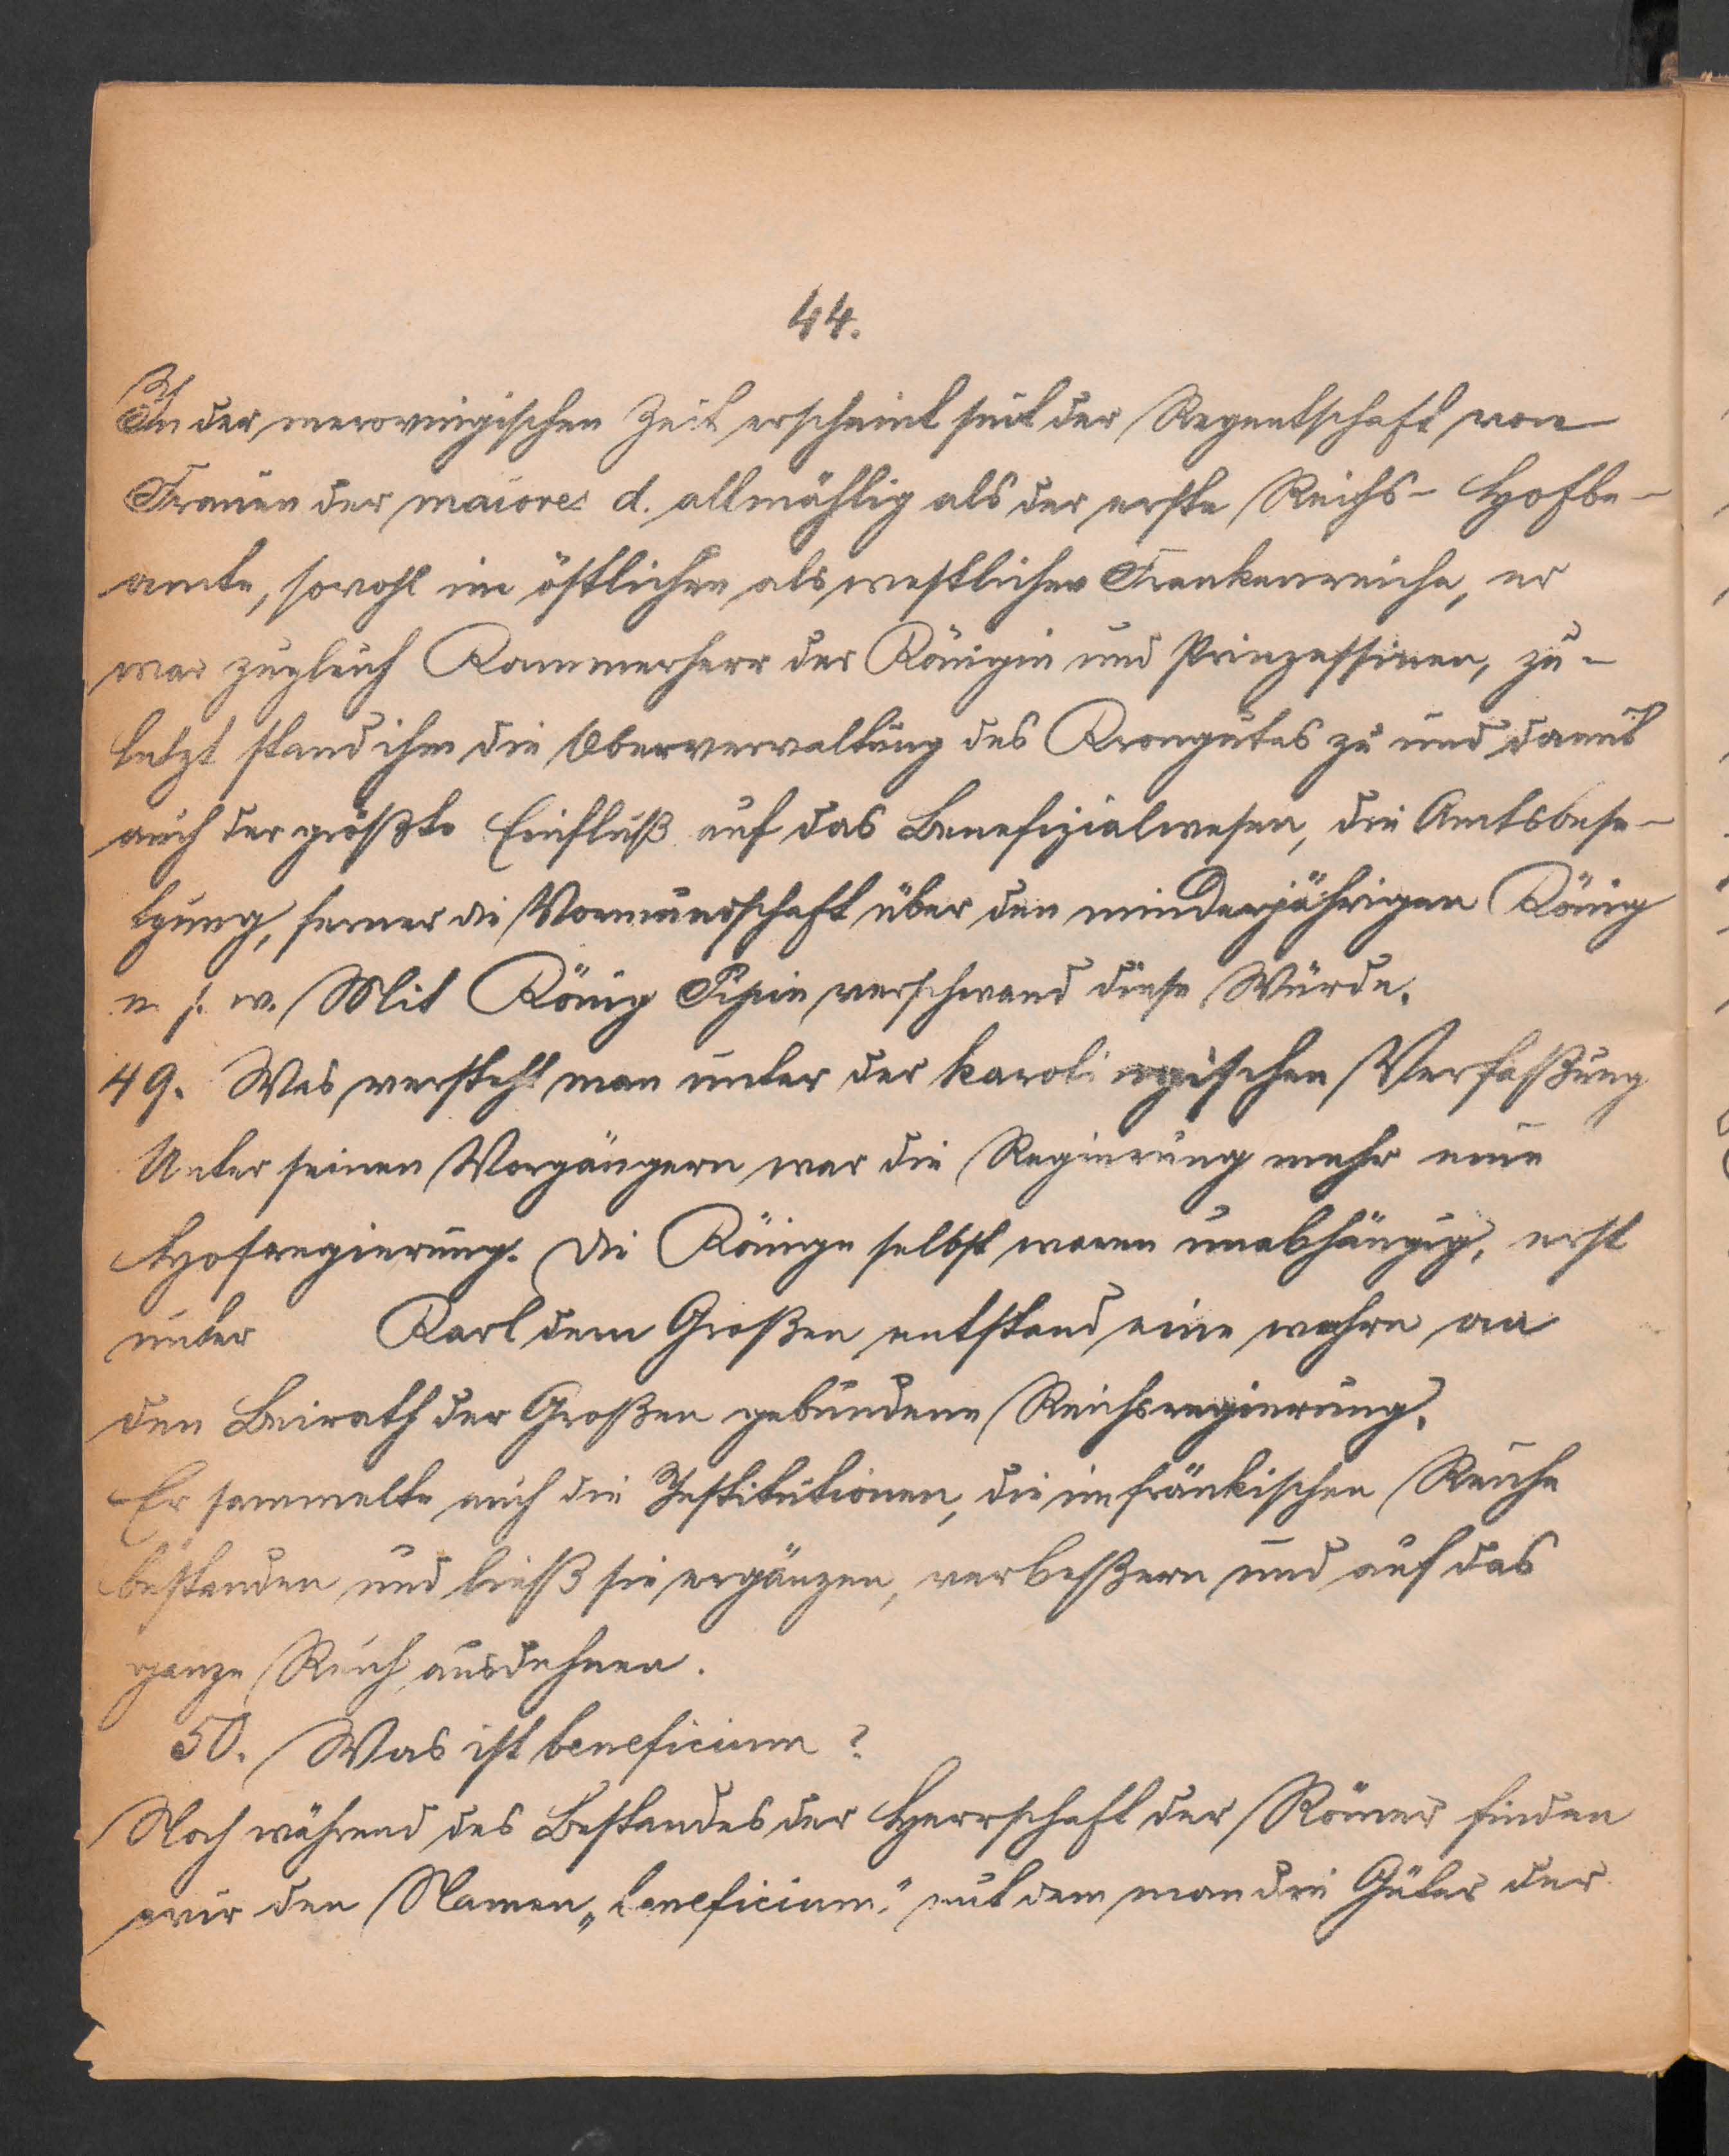 44.
In der merovingischen Zeit erscheint seit der Regentschaft von
Frauen der maiores d. allmählig als der erste Reichs- Hofbe-
amte, sowohl im östlichen als westlichen Frankenreiche, er
war zugleich Kammerherr der Königin und Prinzessinen, zu-
letzt stand ihm die Oberverwaltung des Krongutes zu und damit
auch der größte Einfluß auf das Benefizialwesen, die Amtsbese-
tzung, ferner die Vormundschaft über den minderjährigen König
u. s. w. Mit König Pipin verschwand diese Würde.
49. Was versteht man unter der karolingischen Verfaßung
Unter seinen Vorgängern war die Regierung mehr eine
Hofregierung. Die Könige selbst waren unabhängig, erst
unter Karl dem Großen entstand eine wahre an
den Beirath der Großen gebundene Reichsregierung.
Er sammelte auch die Institutionen, die im fränkischen Reiche
bestanden und ließ sie ergänzen, verbeßern und auf das
ganze Reich ausdehnen.
50. Was ist beneficium?
Noch während des Bestandes der Herrschaft der Römer finden
wir den Namen „beneficium," mit dem man die Güter der